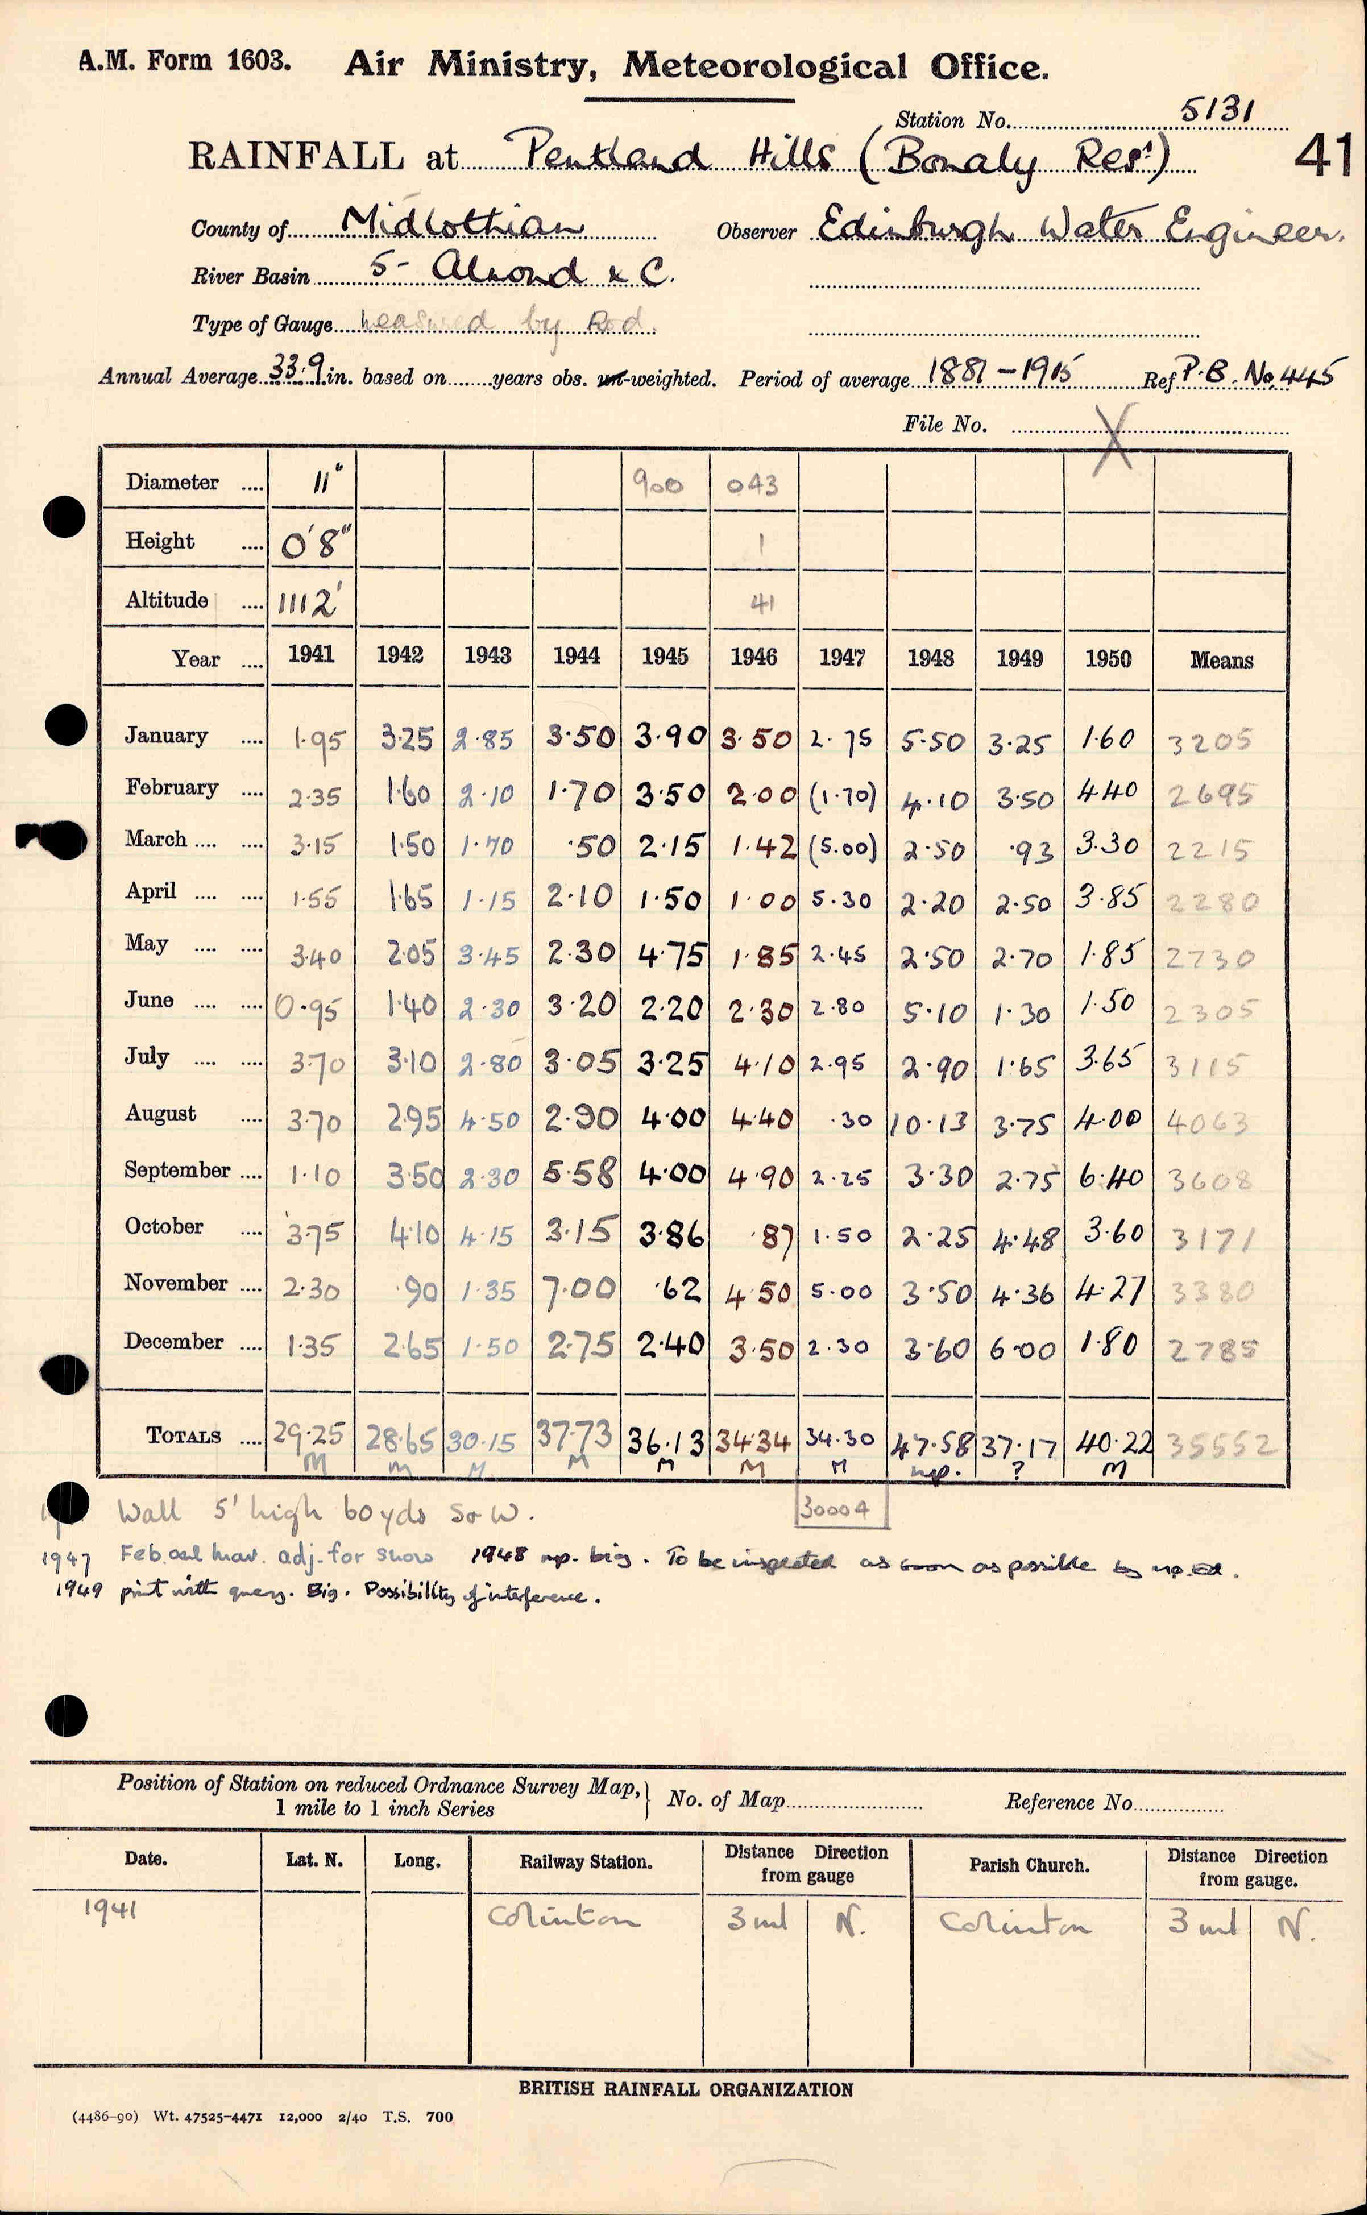 A.M. Form 1603. Air Ministry, Meteorological Office.
Station No. 5131
RAINFALL at Pentland Hills (Bonaly Resr) 41
County of Midlothian Observer Edinburgh Water Engineer.
River Basin 5 - Almond &c.
Type of Gauge measured by Rod.
Annual Average 33.9 in. based on years obs. un-weighted. Period of average 1881-1915 Ref P.B. No. 445
File No. X
Diameter .... 11" 900 043
Height .... 0'8" 1
Altitude .... 1112' 41
Year .... 1941 1942 1943 1944 1945 1946 1947 1948 1949 1950 Means
January .... 1.95 3.25 2.85 3.50 3.90 3.50 2.75 5.50 3.25 1.60 3205
February .... 2.35 1.60 2.10 1.70 3.50 2.00 (1.70) 4.10 3.50 4.40 2695
March .... .... 3.15 1.50 1.70 .50 2.15 1.42 (5.00) 2.50 .93 3.30 2215
April .... .... 1.55 1.65 1.15 2.10 1.50 1.00 5.30 2.20 2.50 3.85 2280
May .... .... 3.40 2.05 3.45 2.30 4.75 1.85 2.45 2.50 2.70 1.85 2730
June .... .... 0.95 1.40 2.30 3.20 2.20 2.30 2.80 5.10 1.30 1.50 2305
July .... .... 3.70 3.10 2.80 3.05 3.25 4.10 2.95 2.90 1.65 3.65 3115
August .... 3.70 2.95 4.50 2.90 4.00 4.40 .30 10.13 3.75 4.00 4063
September .... 1.10 3.50 2.30 5.58 4.00 4.90 2.25 3.30 2.75 6.40 3608
October .... 3.75 4.10 4.15 3.15 3.86 .87 1.50 2.25 4.48 3.60 3171
November .... 2.30 .90 1.35 7.00 .62 4.50 5.00 3.50 4.36 4.27 3380
December .... 1.35 2.65 1.50 2.75 2.40 3.50 2.30 3.60 6.00 1.80 2785
TOTALS .... 29.25 28.65 30.15 37.73 36.13 34.34 34.30 47.58 37.17 40.22 35552
M M M M M M M np. ? M
Wall 5' high 60 yds S & W. 30004
1947 Feb. and Mar. adj. for snow 1948 np. big. To be inspected as soon as possible by
1949 print with query. Big. Possibility of interference.
Position of Station on reduced Ordnance Survey Map, 1 mile to 1 inch Series } No. of Map Reference No.
Date. Lat. N. Long. Railway Station. Distance Direction from gauge Parish Church. Distance Direction from gauge.
1941 Colinton 3 ml N. Colinton 3 ml N.
BRITISH RAINFALL ORGANIZATION
(4486-90) Wt. 47525-4471 12,000 2/40 T.S. 700